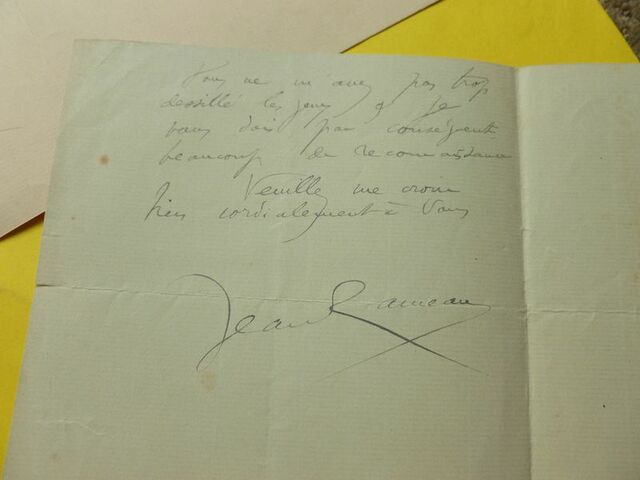 Vous ne m'avez pas trop
dessillé les yeux & je
vous dois par conséquent
beaucoup de reconnaissance
Veuillez me croire
bien cordialement à vous
Jean Rameau